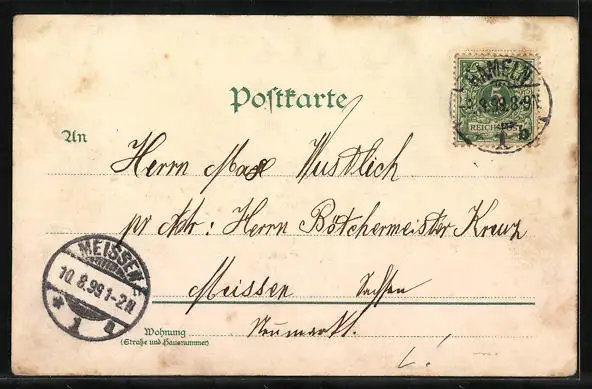 Postkarte
HAMELN
8.99.8-9N.
1 b
5
REICHSPOST
An
Herrn Max Wustlich
pr Adr: Herrn Böttchermeister Kreuz
Meissen Sachsen
Neumarkt.
Wohnung
(Straße und Hausnummer)
MEISSEN
10.8.99.1-2N
* 1 *